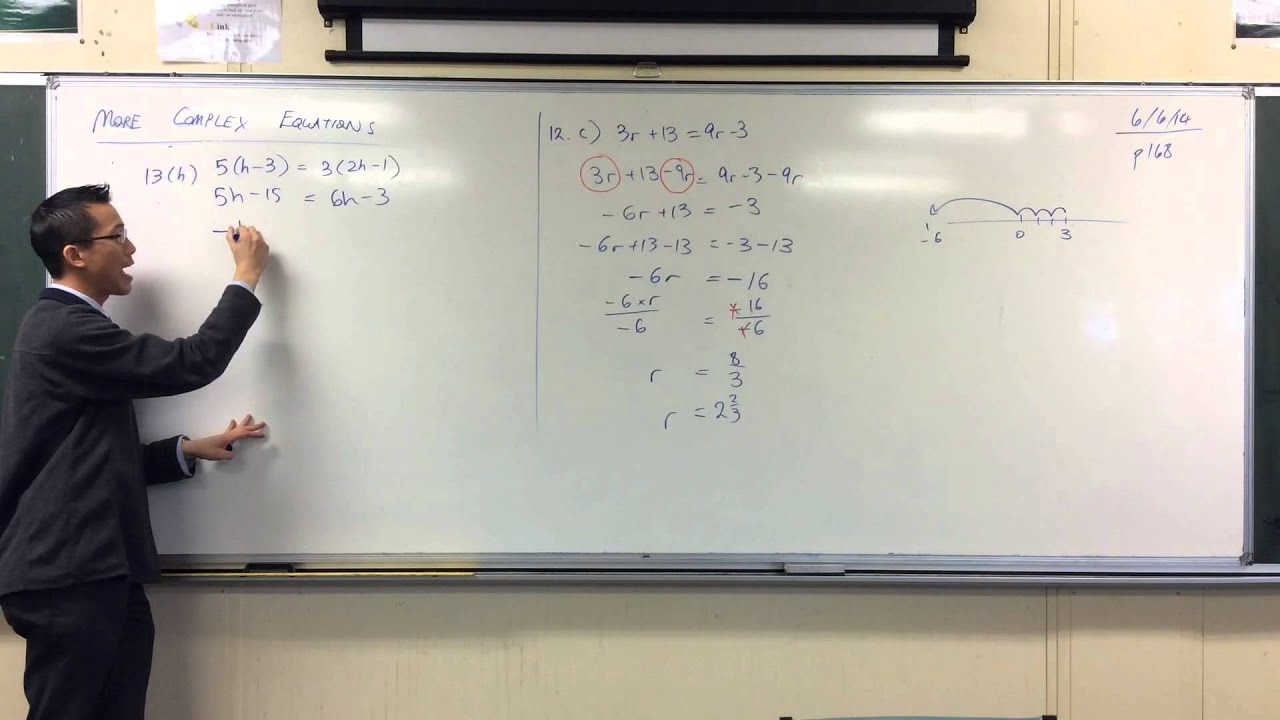 Link
MORE COMPLEX EQUATIONS
13(h) 5(h-3) = 3(2h-1)
5h-15 = 6h-3
12. c) 3r+13 = 9r-3
3r+13-9r = 9r-3-9r
-6r+13 = -3
-6r+13-13 = -3-13
-6r = -16
-6×r/-6 = -16/-6
r = 8/3
r = 2 2/3
6/6/14
p168
-6 0 3